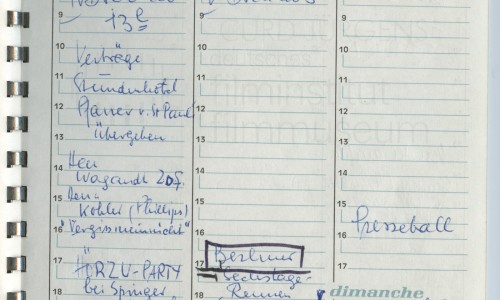 13
9
10
Verträge
11
Stundenhotel
12
Pfarrer v. St Pauli
13
übergeben
14
Herr
15
Wagandt ZDF.
Rena
16
Köhler (Phillips)
"Vergissmeinnicht"
17
HÖRZU-PARTY
18
bei Springer
9
10
11
12
13
14
15
16
17
Berliner
Sechstage-
18
Rennen
9
10
11
12
13
14
15
Presseball
16
17
dimanche